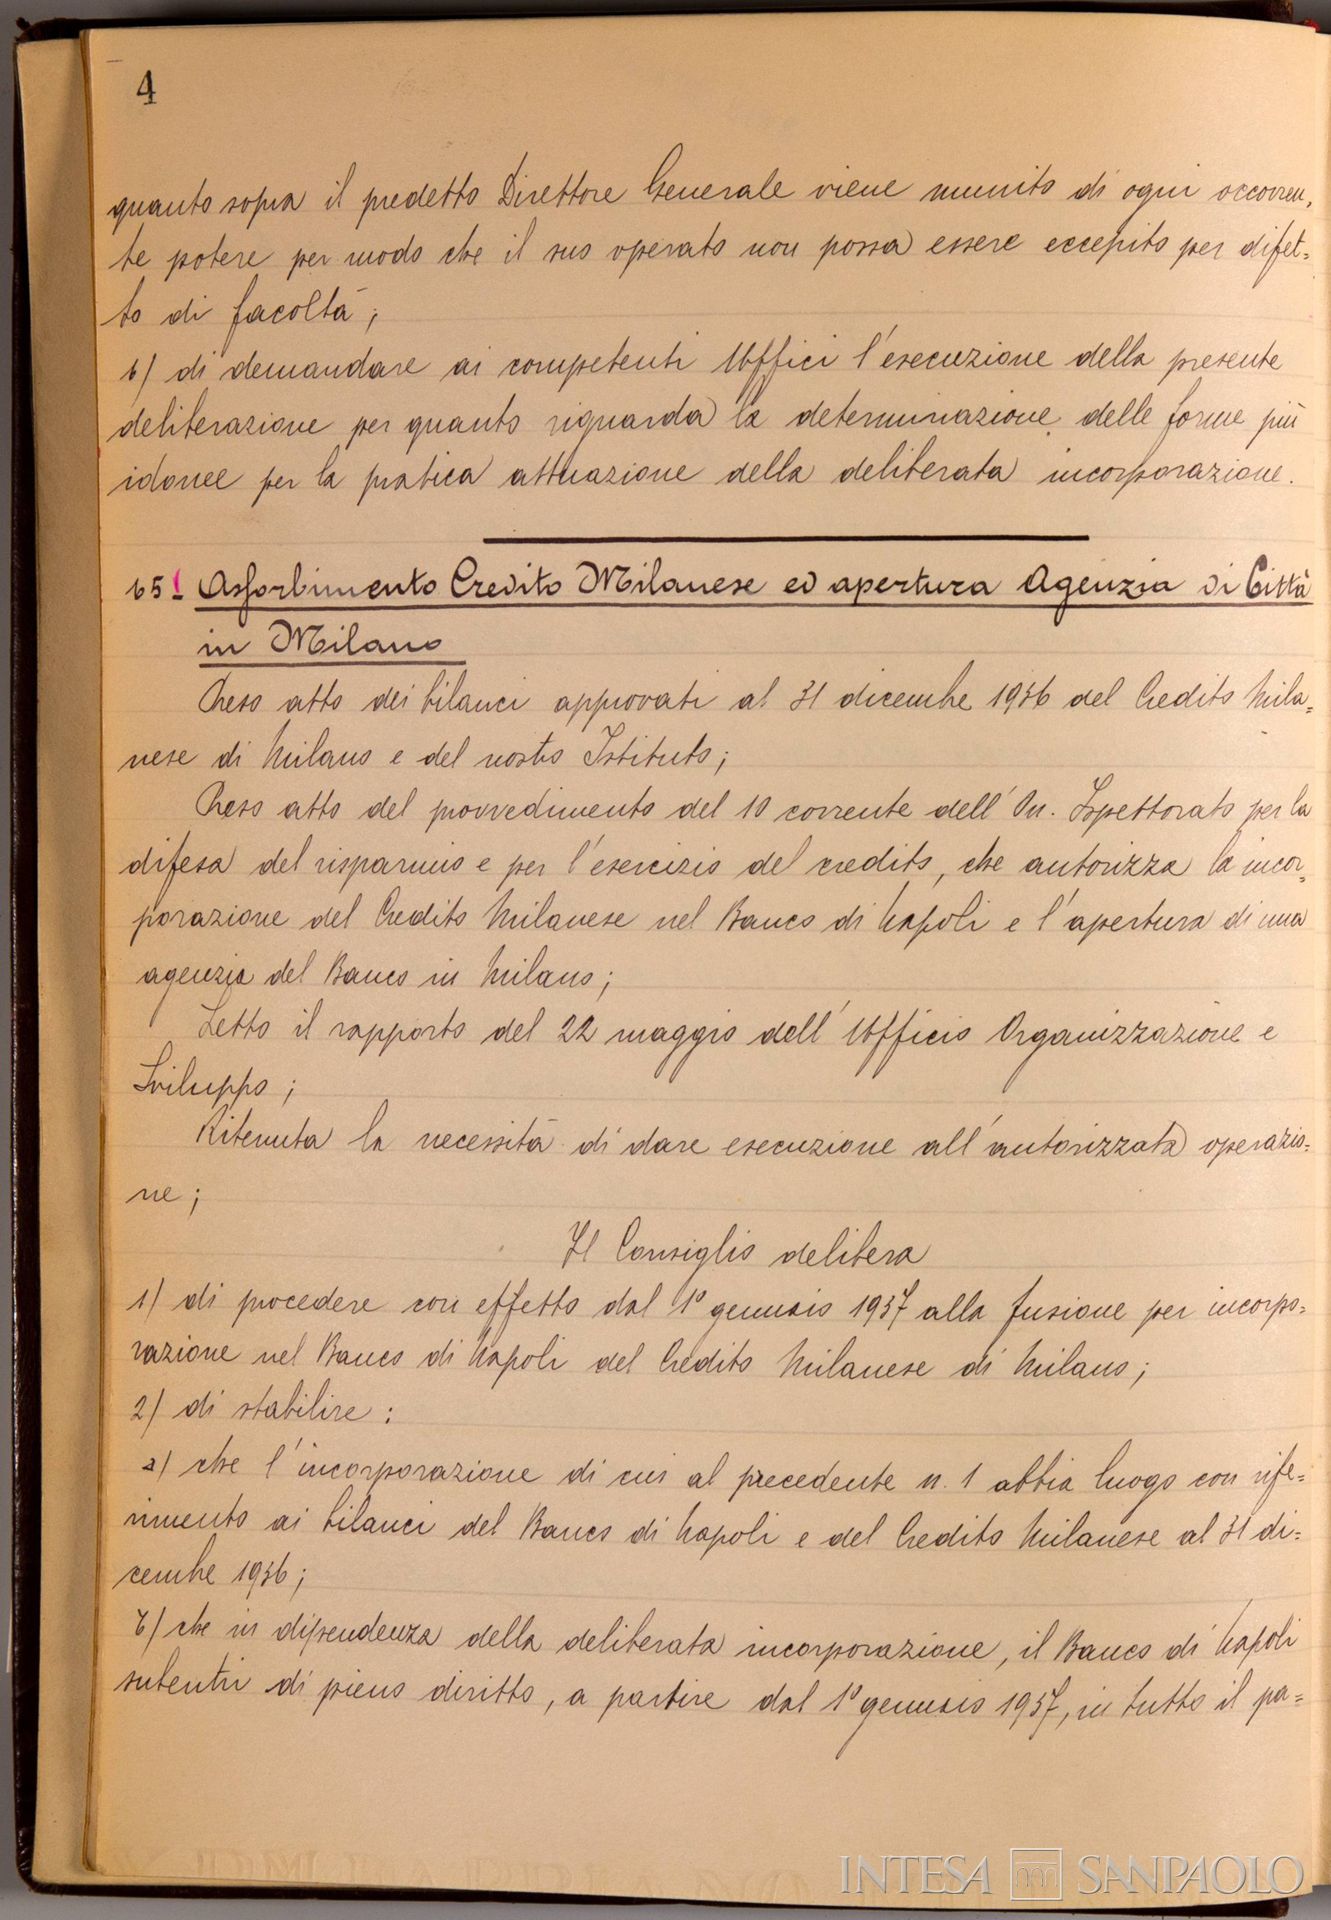 4
quanto sopra il predetto Direttore Generale viene munito di ogni occorren,
te potere per modo che il suo operato non possa essere eccepito per difet=
to di facoltà;
6) di demandare ai competenti Uffici l'esecuzione della presente
deliberazione per quanto riguarda la determinazione delle forme più
idonee per la pratica attuazione della deliberata incorporazione.
65 Assorbimento Credito Milanese ed apertura Agenzia di Città
in Milano
Preso atto dei bilanci approvati al 31 dicembre 1936 del Credito Mila=
nese di Milano e del nostro Istituto;
Preso atto del provvedimento del 10 corrente dell'On. Ispettorato per la
difesa del risparmio e per l'esercizio del credito, che autorizza la incor=
porazione del Credito Milanese nel Banco di Napoli e l'apertura di una
agenzia del Banco in Milano;
Letto il rapporto del 22 maggio dell'Ufficio Organizzazione e
Sviluppo;
Ritenuta la necessità di dare esecuzione all'autorizzata operazio=
ne;
Il Consiglio delibera
1) di procedere con effetto dal 1° gennaio 1937 alla fusione per incorpo=
razione nel Banco di Napoli del Credito Milanese di Milano;
2) di stabilire:
a) che l'incorporazione di cui al precedente n. 1 abbia luogo con rife=
rimento ai bilanci del Banco di Napoli e del Credito Milanese al 31 di=
cembre 1936;
b) che in dipendenza della deliberata incorporazione, il Banco di Napoli
subentri di pieno diritto, a partire dal 1° gennaio 1937, in tutto il pa=
INTESA SANPAOLO